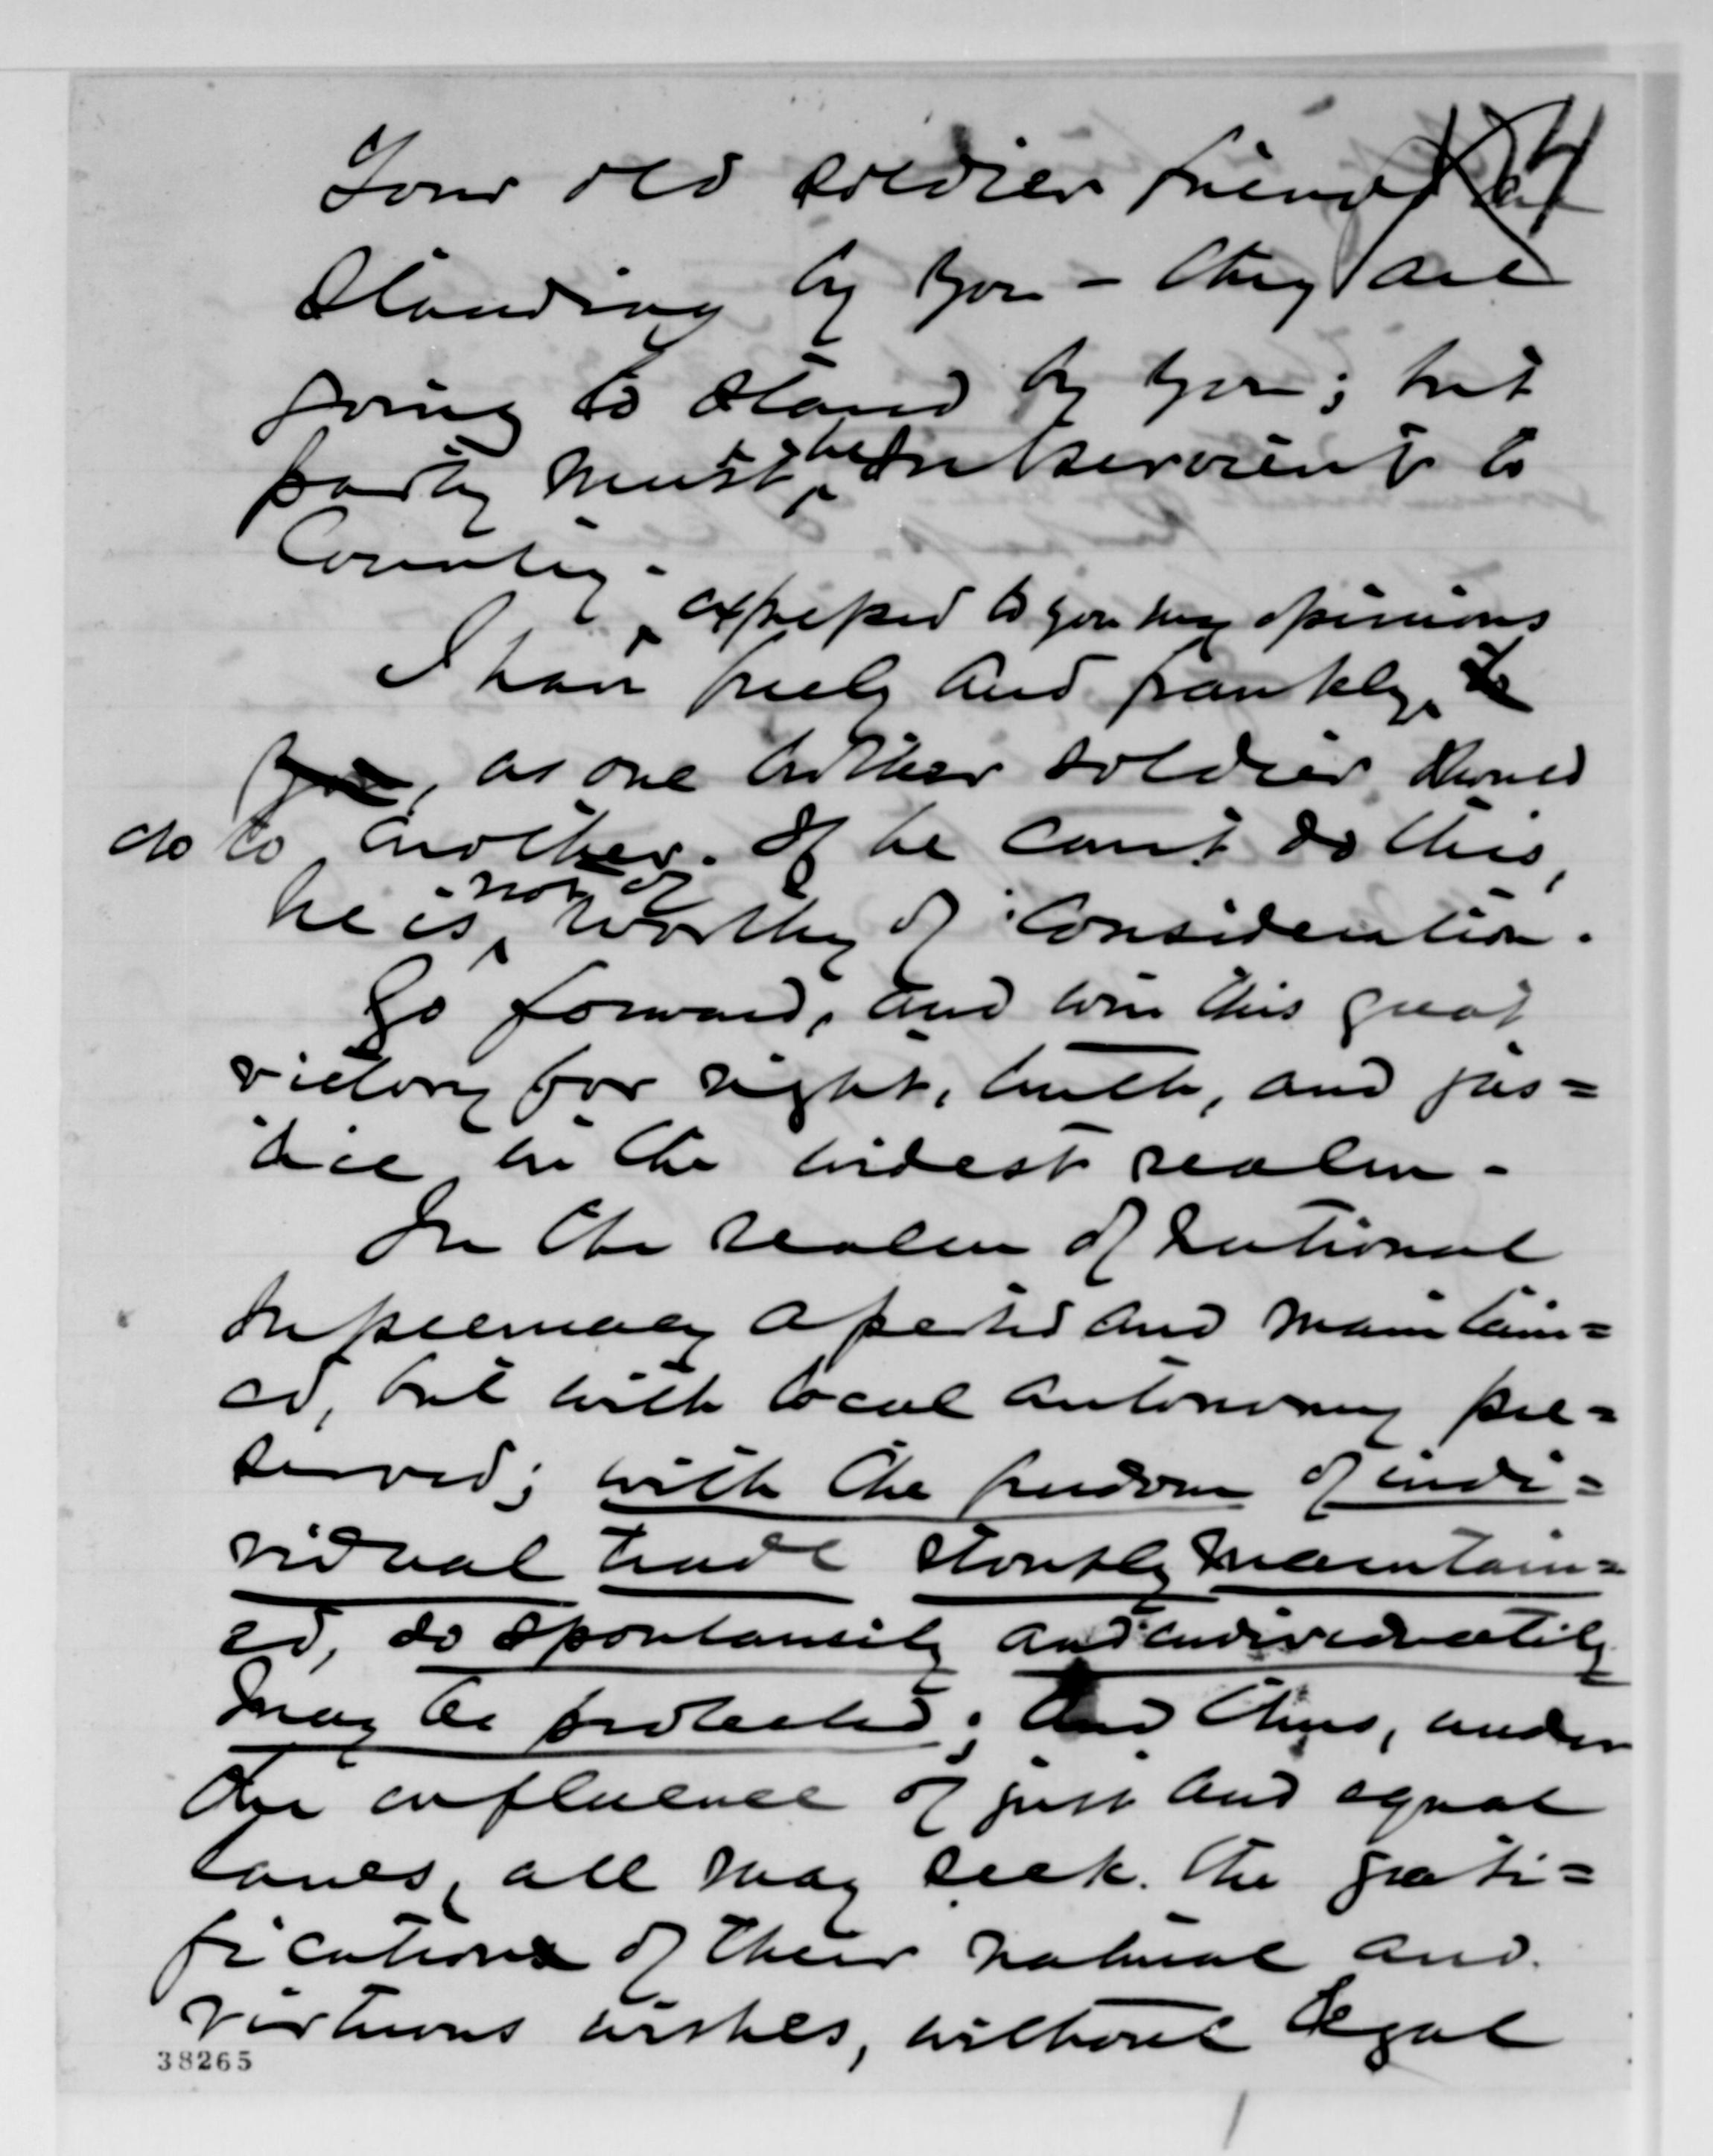 4
Your old soldier friends are
standing by you - they are
going to stand by you; but
party must be subservient to
Country.
expressed to you my opinions
I have freely and frankly, to
you, as one brother soldier should
do to another. If he can't do this,
he is not worthy of consideration.
Go forward, and win this great
victory for right, truth, and jus=
tice in the widest realm -
In the realm of National
supremacy asserted and maintain=
ed, but with local autonomy pre=
served; with the freedom of indi=
vidual trade stoutly maintain=
ed, so spontaneity and individuality
may be protected; and thus, under
the influence of just and equal
laws, all may seek the grati=
fication of their natural and
virtuous wishes, without legal
38265